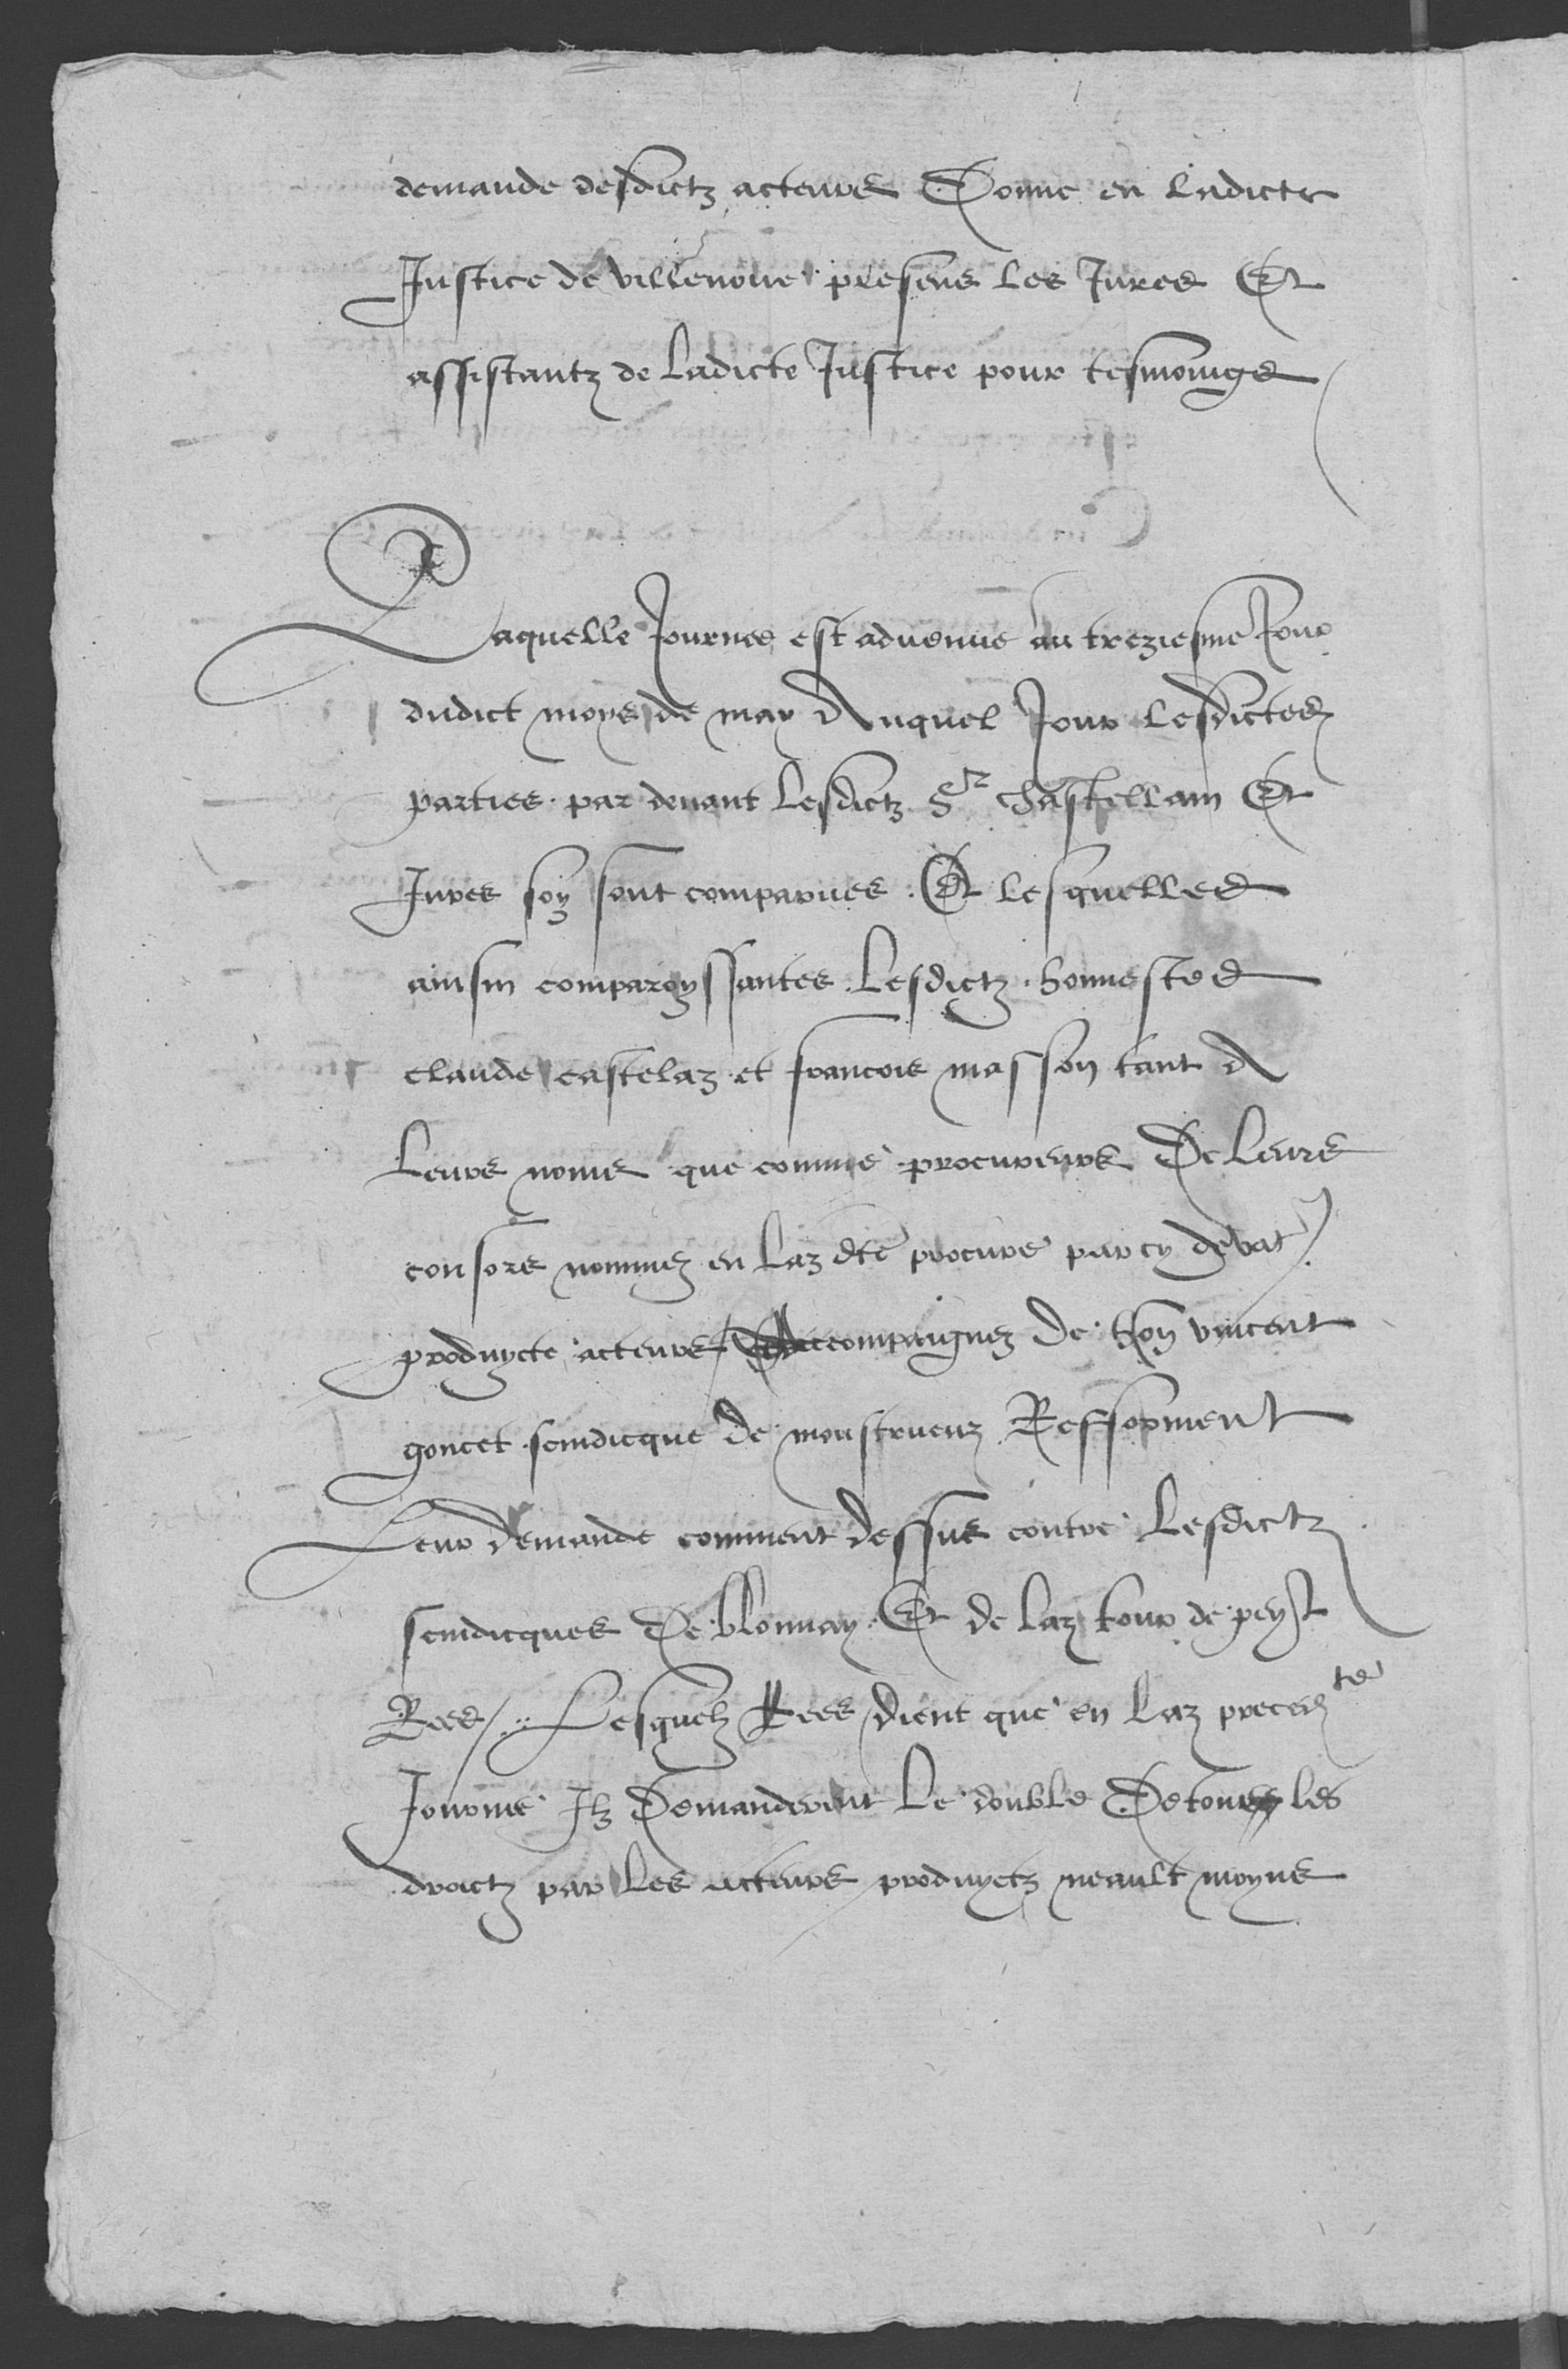 demande desdictz acteurs Donne en Ladicte
Justice de villenove presens les Jures Et
assistantz de Ladicte Justice pour tesmoings
Laquelle Journee est advenue au treziesme Jour
dudict moys de may Auquel Jour Lesdictes
parties par devant Lesdictz Sr chastellain Et
Jures soy sont comparues Et Lesquelles
ainsin comparoyssantes Lesdictz honnestes
claude castelaz et francois masson tant A
Leurs noms que comme procureurs De Leurs
consors nommez en Laz dte procure par cy devat
produycte acteurs / Accompaignez De hon vincent
goncet scindicque De monstruenz Refforment
Leur demande comment dessus contre Lesdictz
scindicques De blonnay Et de Laz tour de peylt
Rees / Lesquelz Rees dient que en Laz precedte
Journee Ilz Demanderent Le double De tous les
droictz par Les acteurs produyctz neault moyns